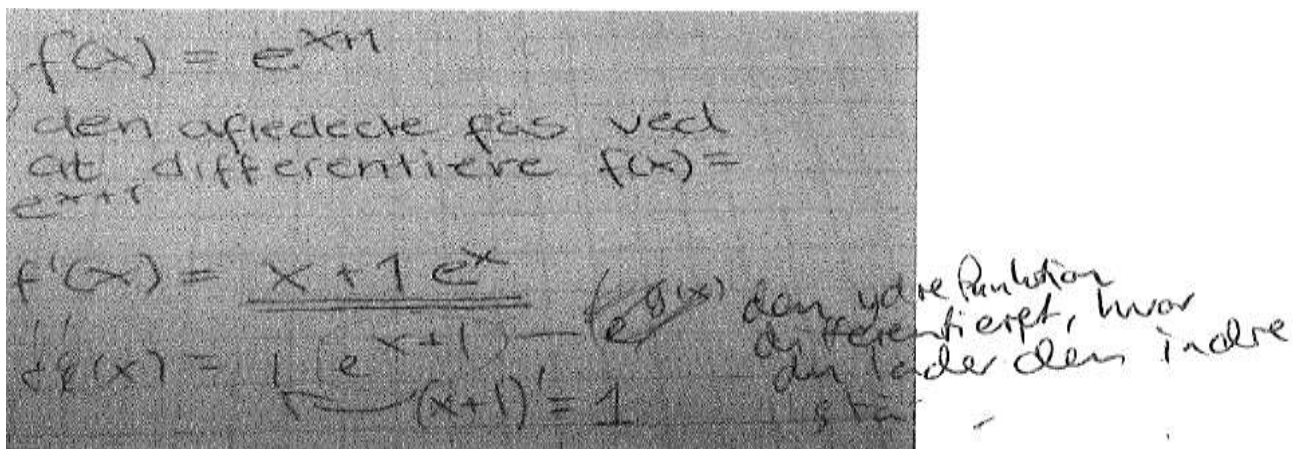 f(x) = e^{x+1}
den afledede fås ved
at differentiere f(x) =
e^{x+1}
f'(x) = x + 1 e^x
(e^{g(x)}) den ydre funktion
differentieret, hvor
(x) = 1 (e^{x+1}) — du lader den indre
(x+1)' = 1 stå